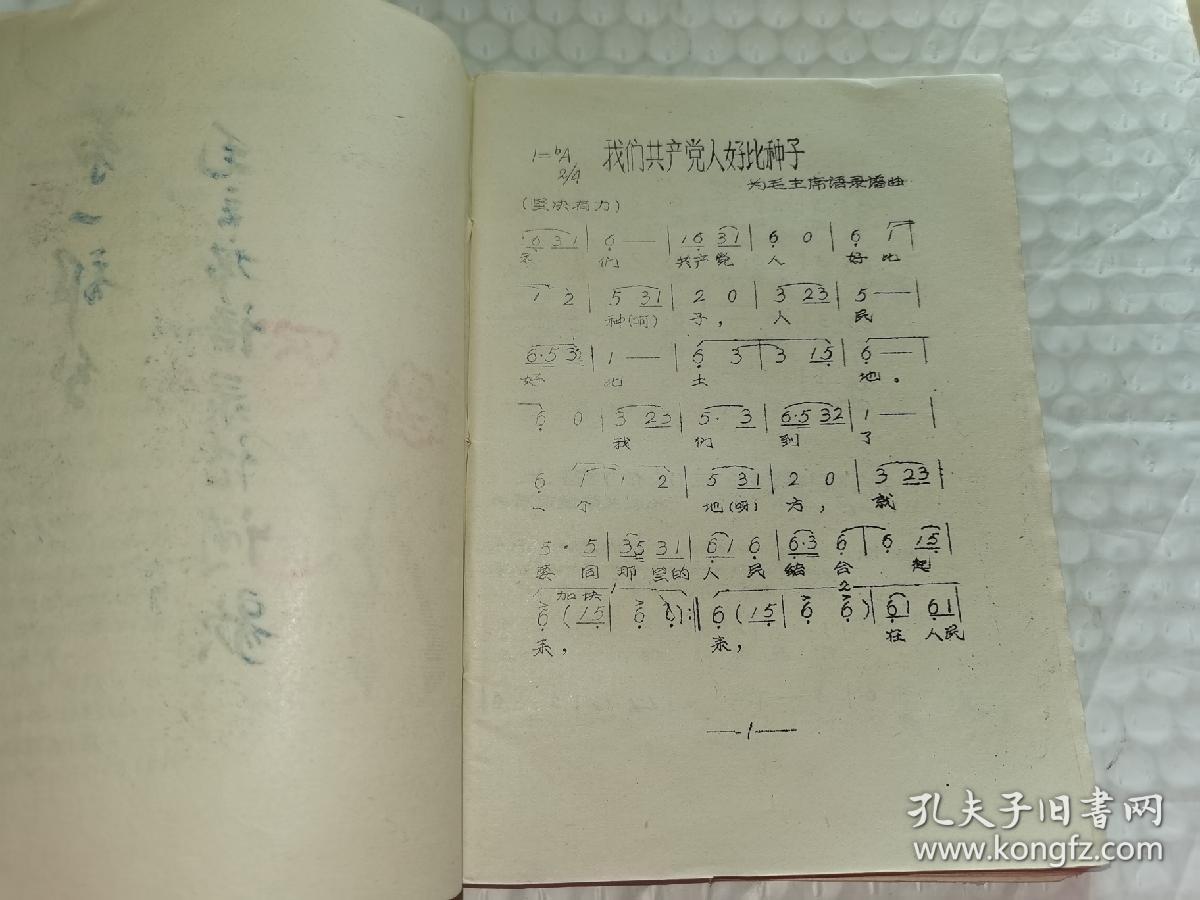 毛主席语录谱
第一部分
我们共产党人好比种子
1=bA
2/4
为毛主席语录谱曲
(坚决有力)
6 31 | 6 — | 16 31 | 6 0 | 6 1
我 们 共产党 人 好比
1 2 | 5 31 | 2 0 | 3 23 | 5 — |
种(啊) 子, 人 民
6·5 32 | 1 — | 6 3 | 3 15 | 6 — |
好 比 土 地。
6 0 | 3 23 | 5· 3 | 6·5 32 | 1 — |
我 们 到 了
6 1 | 1 2 | 5 31 | 2 0 | 3 23 |
一 个 地(呀) 方, 就
5· 5 | 35 31 | 61 6 | 6·3 6 | 6 15 |
要 同 那里的 人 民 结 合 起
加快
2
6 (15 | 6 6) :‖ 6 (15 | 6 6) | 61 61 |
来, 来, 在 人民
—1—
孔夫子旧书网
www.kongfz.com